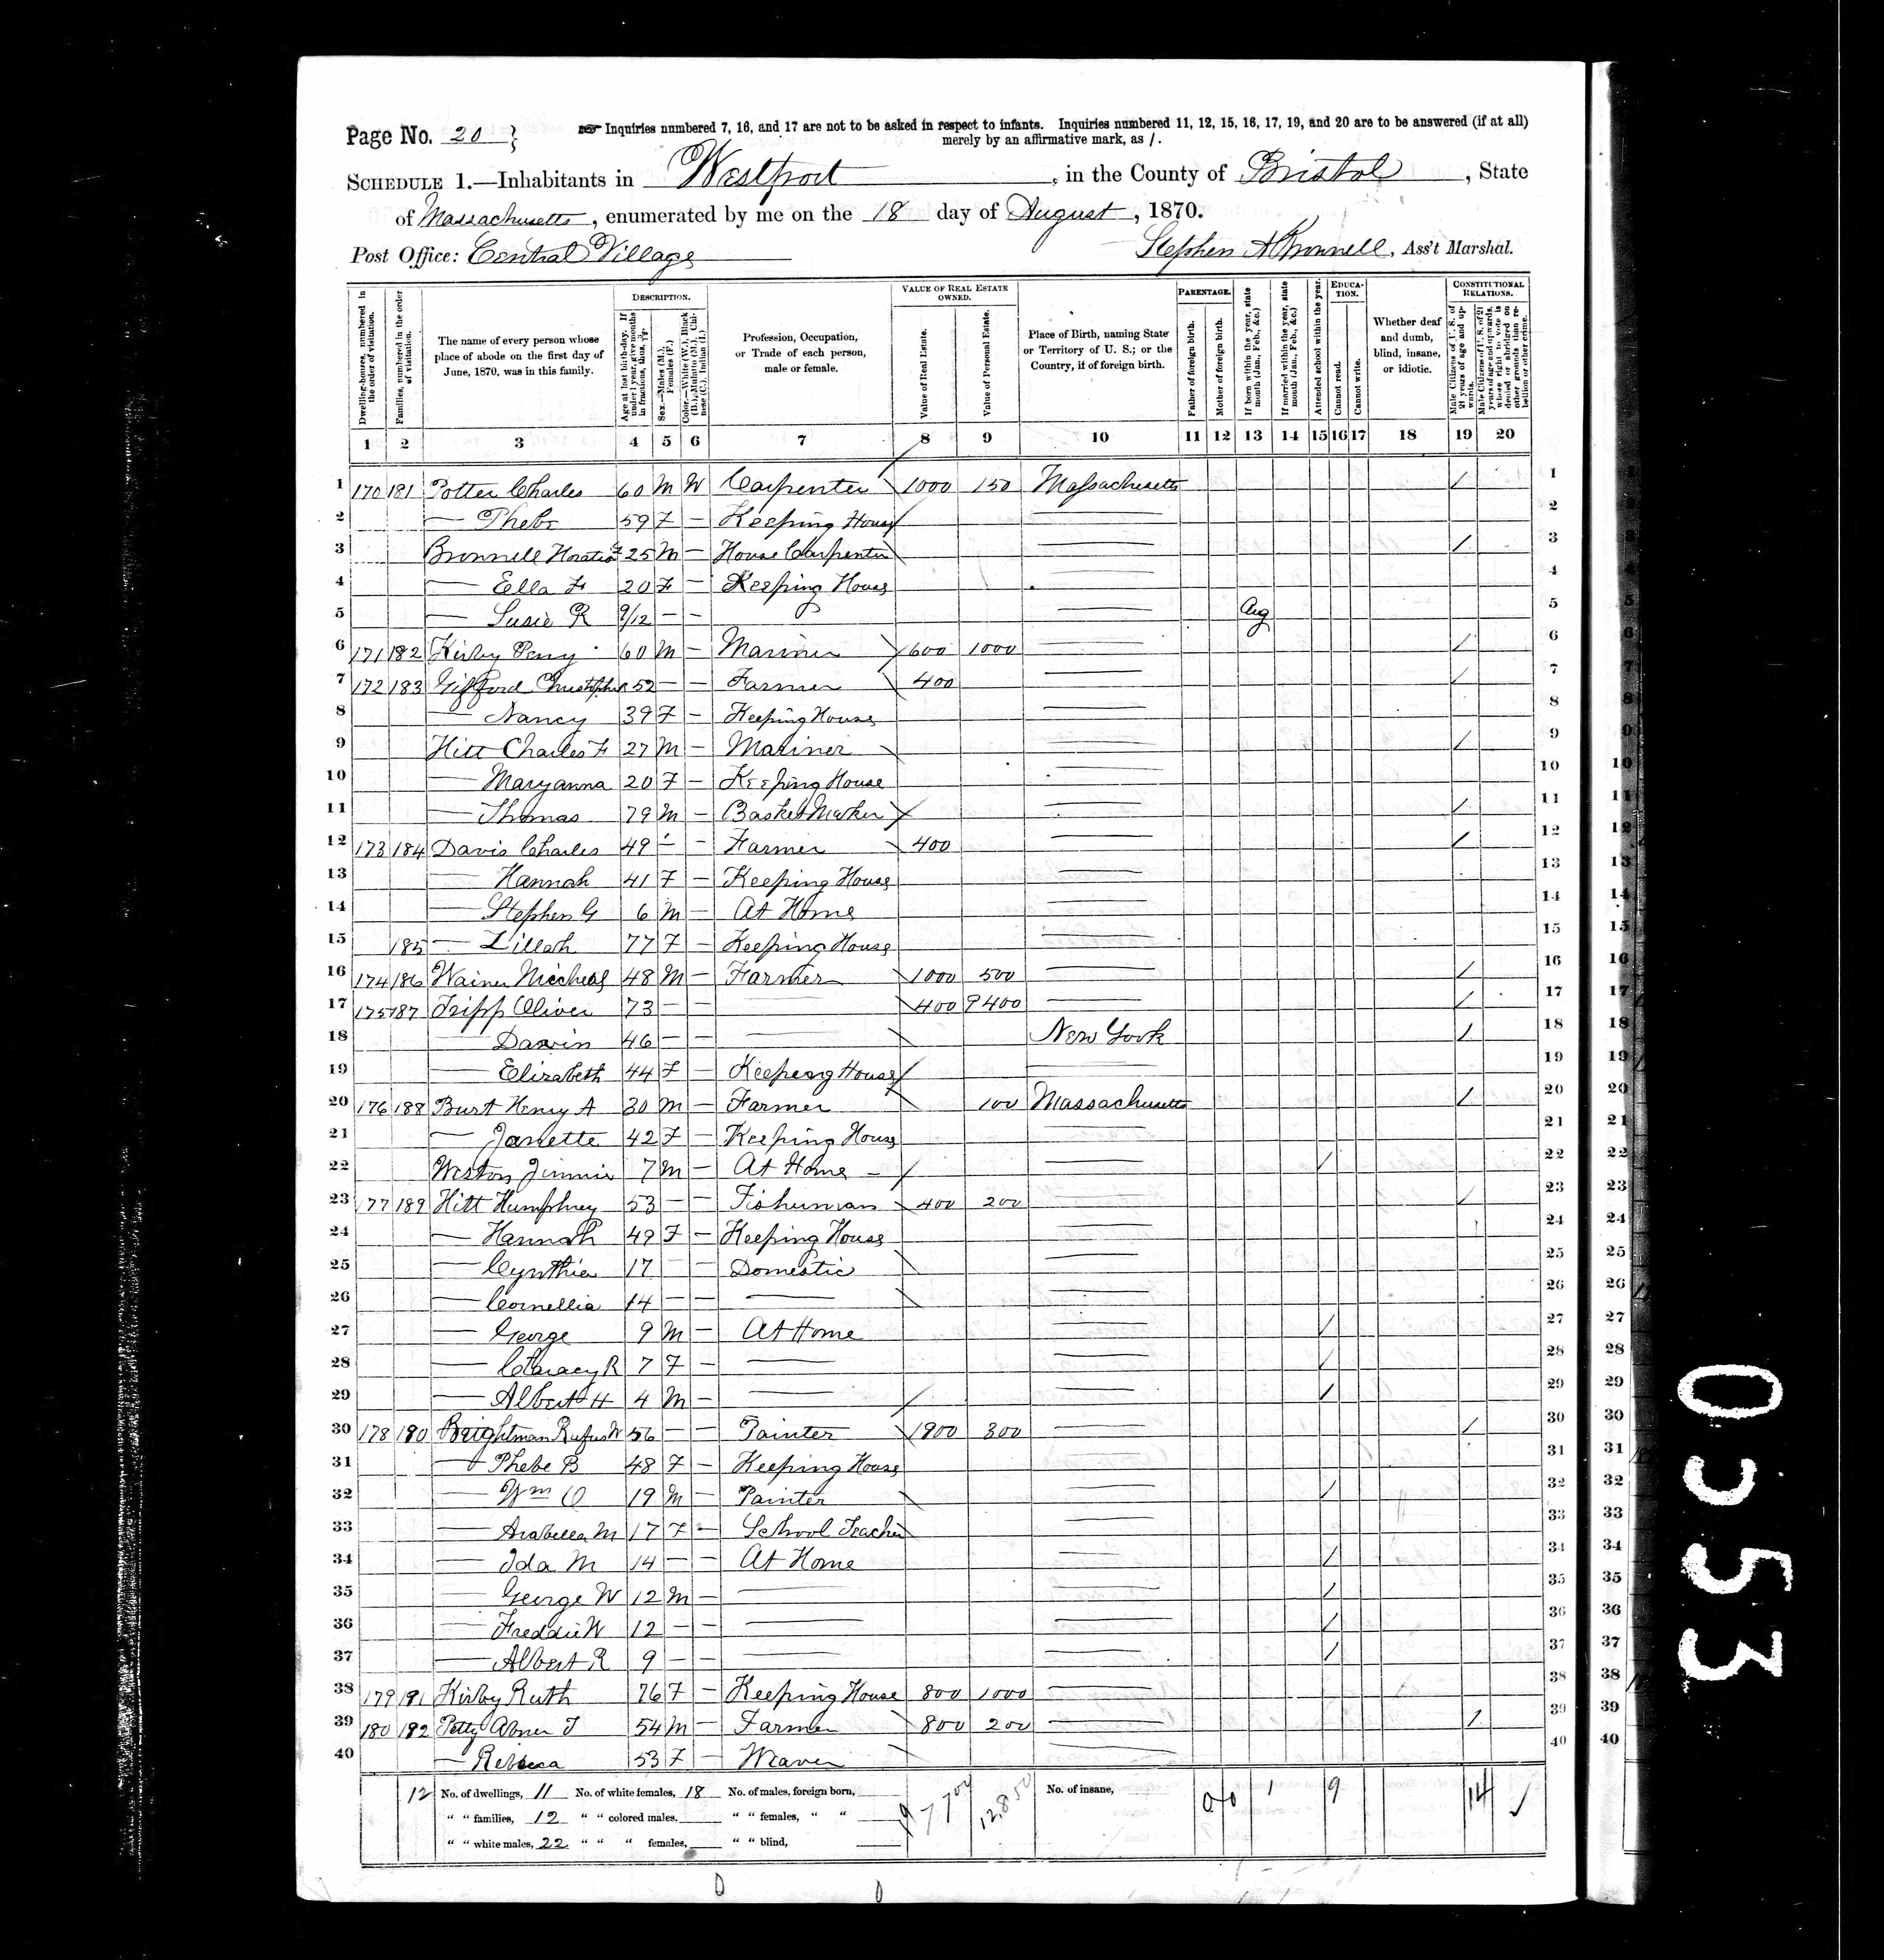 Page No. 20 }
Inquiries numbered 7, 16, and 17 are not to be asked in respect to infants. Inquiries numbered 11, 12, 15, 16, 17, 19, and 20 are to be answered (if at all)
merely by an affirmative mark, as /.
SCHEDULE 1.—Inhabitants in Westport, in the County of Bristol, State
of Massachusetts, enumerated by me on the 18 day of August, 1870.
Post Office: Central Village
Stephen A Brownell, Ass't Marshal.
Dwelling-houses, numbered in the order of visitation.
Families, numbered in the order of visitation.
The name of every person whose place of abode on the first day of June, 1870, was in this family.
DESCRIPTION.
Age at last birth-day. If under 1 year, give months in fractions, thus,
Sex.—Males (M.), Females (F.)
Color.—White (W.), Black (B.), Mulatto (M.), Chinese (C.), Indian (I.)
Profession, Occupation, or Trade of each person, male or female.
VALUE OF REAL ESTATE OWNED.
Value of Real Estate.
Value of Personal Estate.
Place of Birth, naming State or Territory of U. S.; or the Country, if of foreign birth.
PARENTAGE.
Father of foreign birth.
Mother of foreign birth.
If born within the year, state month (Jan., Feb., &c.)
If married within the year, state month (Jan., Feb., &c.)
Attended school within the year.
EDUCATION.
Cannot read.
Cannot write.
Whether deaf and dumb, blind, insane, or idiotic.
CONSTITUTIONAL RELATIONS.
Male Citizens of U. S. of 21 years of age and upwards.
Male Citizens of U. S. of 21 years of age and upwards, whose right to vote is denied or abridged on other grounds than rebellion or other crime.
1 2 3 4 5 6 7 8 9 10 11 12 13 14 15 16 17 18 19 20
1 170 181 Potter Charles 60 M W Carpenter 1000 150 Massachusetts / 1
2 — Phebe 59 F — Keeping House — 2
3 Brownell Horatio 25 M — House Carpenter — / 3
4 — Ella F 20 F — Keeping House — 4
5 — Susie R 9/12 — — — Aug 5
6 171 182 Kirby Perry 60 M — Mariner 1600 1000 — / 6
7 172 183 Gifford Christopher 52 — — Farmer 400 — / 7
8 — Nancy 39 F — Keeping House — 8
9 Hitt Charles F 27 M — Mariner — / 9
10 — Maryanna 20 F — Keeping House — 10
11 — Thomas 79 M — Basket Maker — / 11
12 173 184 Davis Charles 49 — — Farmer 400 — / 12
13 — Hannah 41 F — Keeping House — 13
14 — Stephen G 6 M — At Home — 14
15 185 — Zillah 77 F — Keeping House — 15
16 174 186 Wainer Micheal 48 M — Farmer 1000 500 — / 16
17 175 187 Tripp Oliver 73 — — — 400 9400 — / 17
18 — 46 — — — New York / 18
19 — Elizabeth 44 F — Keeping House — 19
20 176 188 Burt Henry A 30 M — Farmer 100 Massachusetts / 20
21 — Janette 42 F — Keeping House — 21
22 Weston Jimmie 7 M — At Home — — / 22
23 177 189 Hitt Humphrey 53 — — Fisherman 400 200 — / 23
24 — Hannah 49 F — Keeping House — 24
25 — Cynthia 17 — — Domestic — 25
26 — Cornellia 14 — — — — 26
27 — George 9 M — At Home — / 27
28 — R 7 F — — — / 28
29 — Albert H 4 M — — — / 29
30 178 190 Brightman Rufus W 56 — — Painter 1900 300 — / 30
31 — Phebe B 48 F — Keeping House 31
32 — Wm O 19 M — Painter — / 32
33 — Arabella M 17 F — School Teacher — 33
34 — Ida M 14 — — At Home — / 34
35 — George W 12 M — — — / 35
36 — Freddie W 12 — — — — / 36
37 — Albert R 9 — — — — / 37
38 179 191 Kirby Ruth 76 F — Keeping House 800 1000 — 38
39 180 192 Petty Abner T 54 M — Farmer 800 200 — / 39
40 — Rebecca 53 F — Weaver — 40
12 No. of dwellings, 11 No. of white females, 18 No. of males, foreign born, No. of insane,
" " families, 12 " " colored males, " " females, " "
" " white males, 22 " " " females, " " blind,
12,850
1 9 14
0553